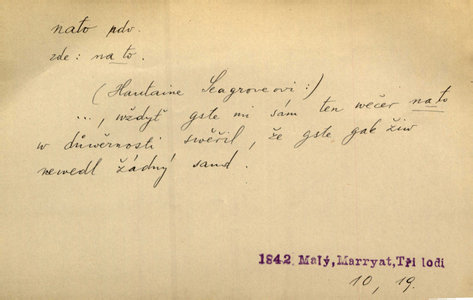 nato pdv.
zde: na to.
(Hautaine Seagroveovi:)
..., wždyť gste mi sám ten wečer na to
w důwěrnosti swěřil, že gste gak žiw
newedl žádný saud.
1842 Malý,Marryat,Tři lodi
10, 19.